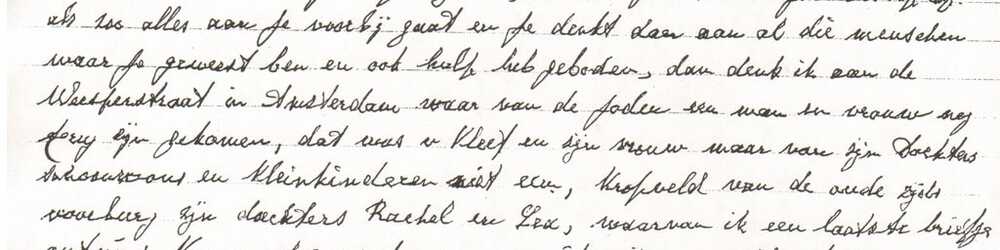 als zoo alles aan je voorbij gaat en je denkt dan aan al die menschen
waar je geweest ben en ook hulp heb geboden, dan denk ik aan de
Weesperstraat in Amsterdam waar van de Joden een man en vrouw nog
terug zijn gekomen, dat was v Kleef en zijn vrouw maar van zijn Dochters
schoonzoons en kleinkinderen niet een, Kropveld van de oude zijds
voorburg zijn dochters Rachel en Lea, waarvan ik een laatste briefje